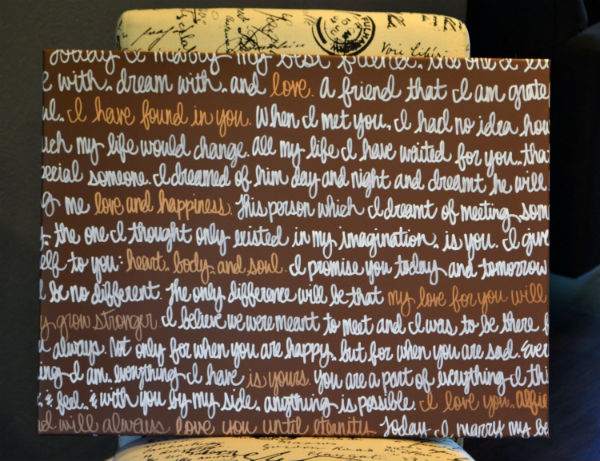 today I marry my best friend, the one I
with, dream with, and love. A friend that I am
I have found in you. When I met you, I had no idea how
my life would change. All my life I have waited for you, that
special someone. I dreamed of him day and night and dreamt he will
me love and happiness. This person which I dreamt of meeting, som
the one I thought only existed in my imagination, is you. I give
elf to you: heart, body and soul. I promise you today and tomorrow
be no different. The only difference will be that my love for you will
grow stronger. I believe we were meant to meet and I was to be there
always. Not only for when you are happy, but for when you are sad. Ever
ing I am, everything I have is yours. You are a part of everything I thi
& feel, & with you by my side, anything is possible. I love you,
and will always love you until eternity. Today, I marry my be